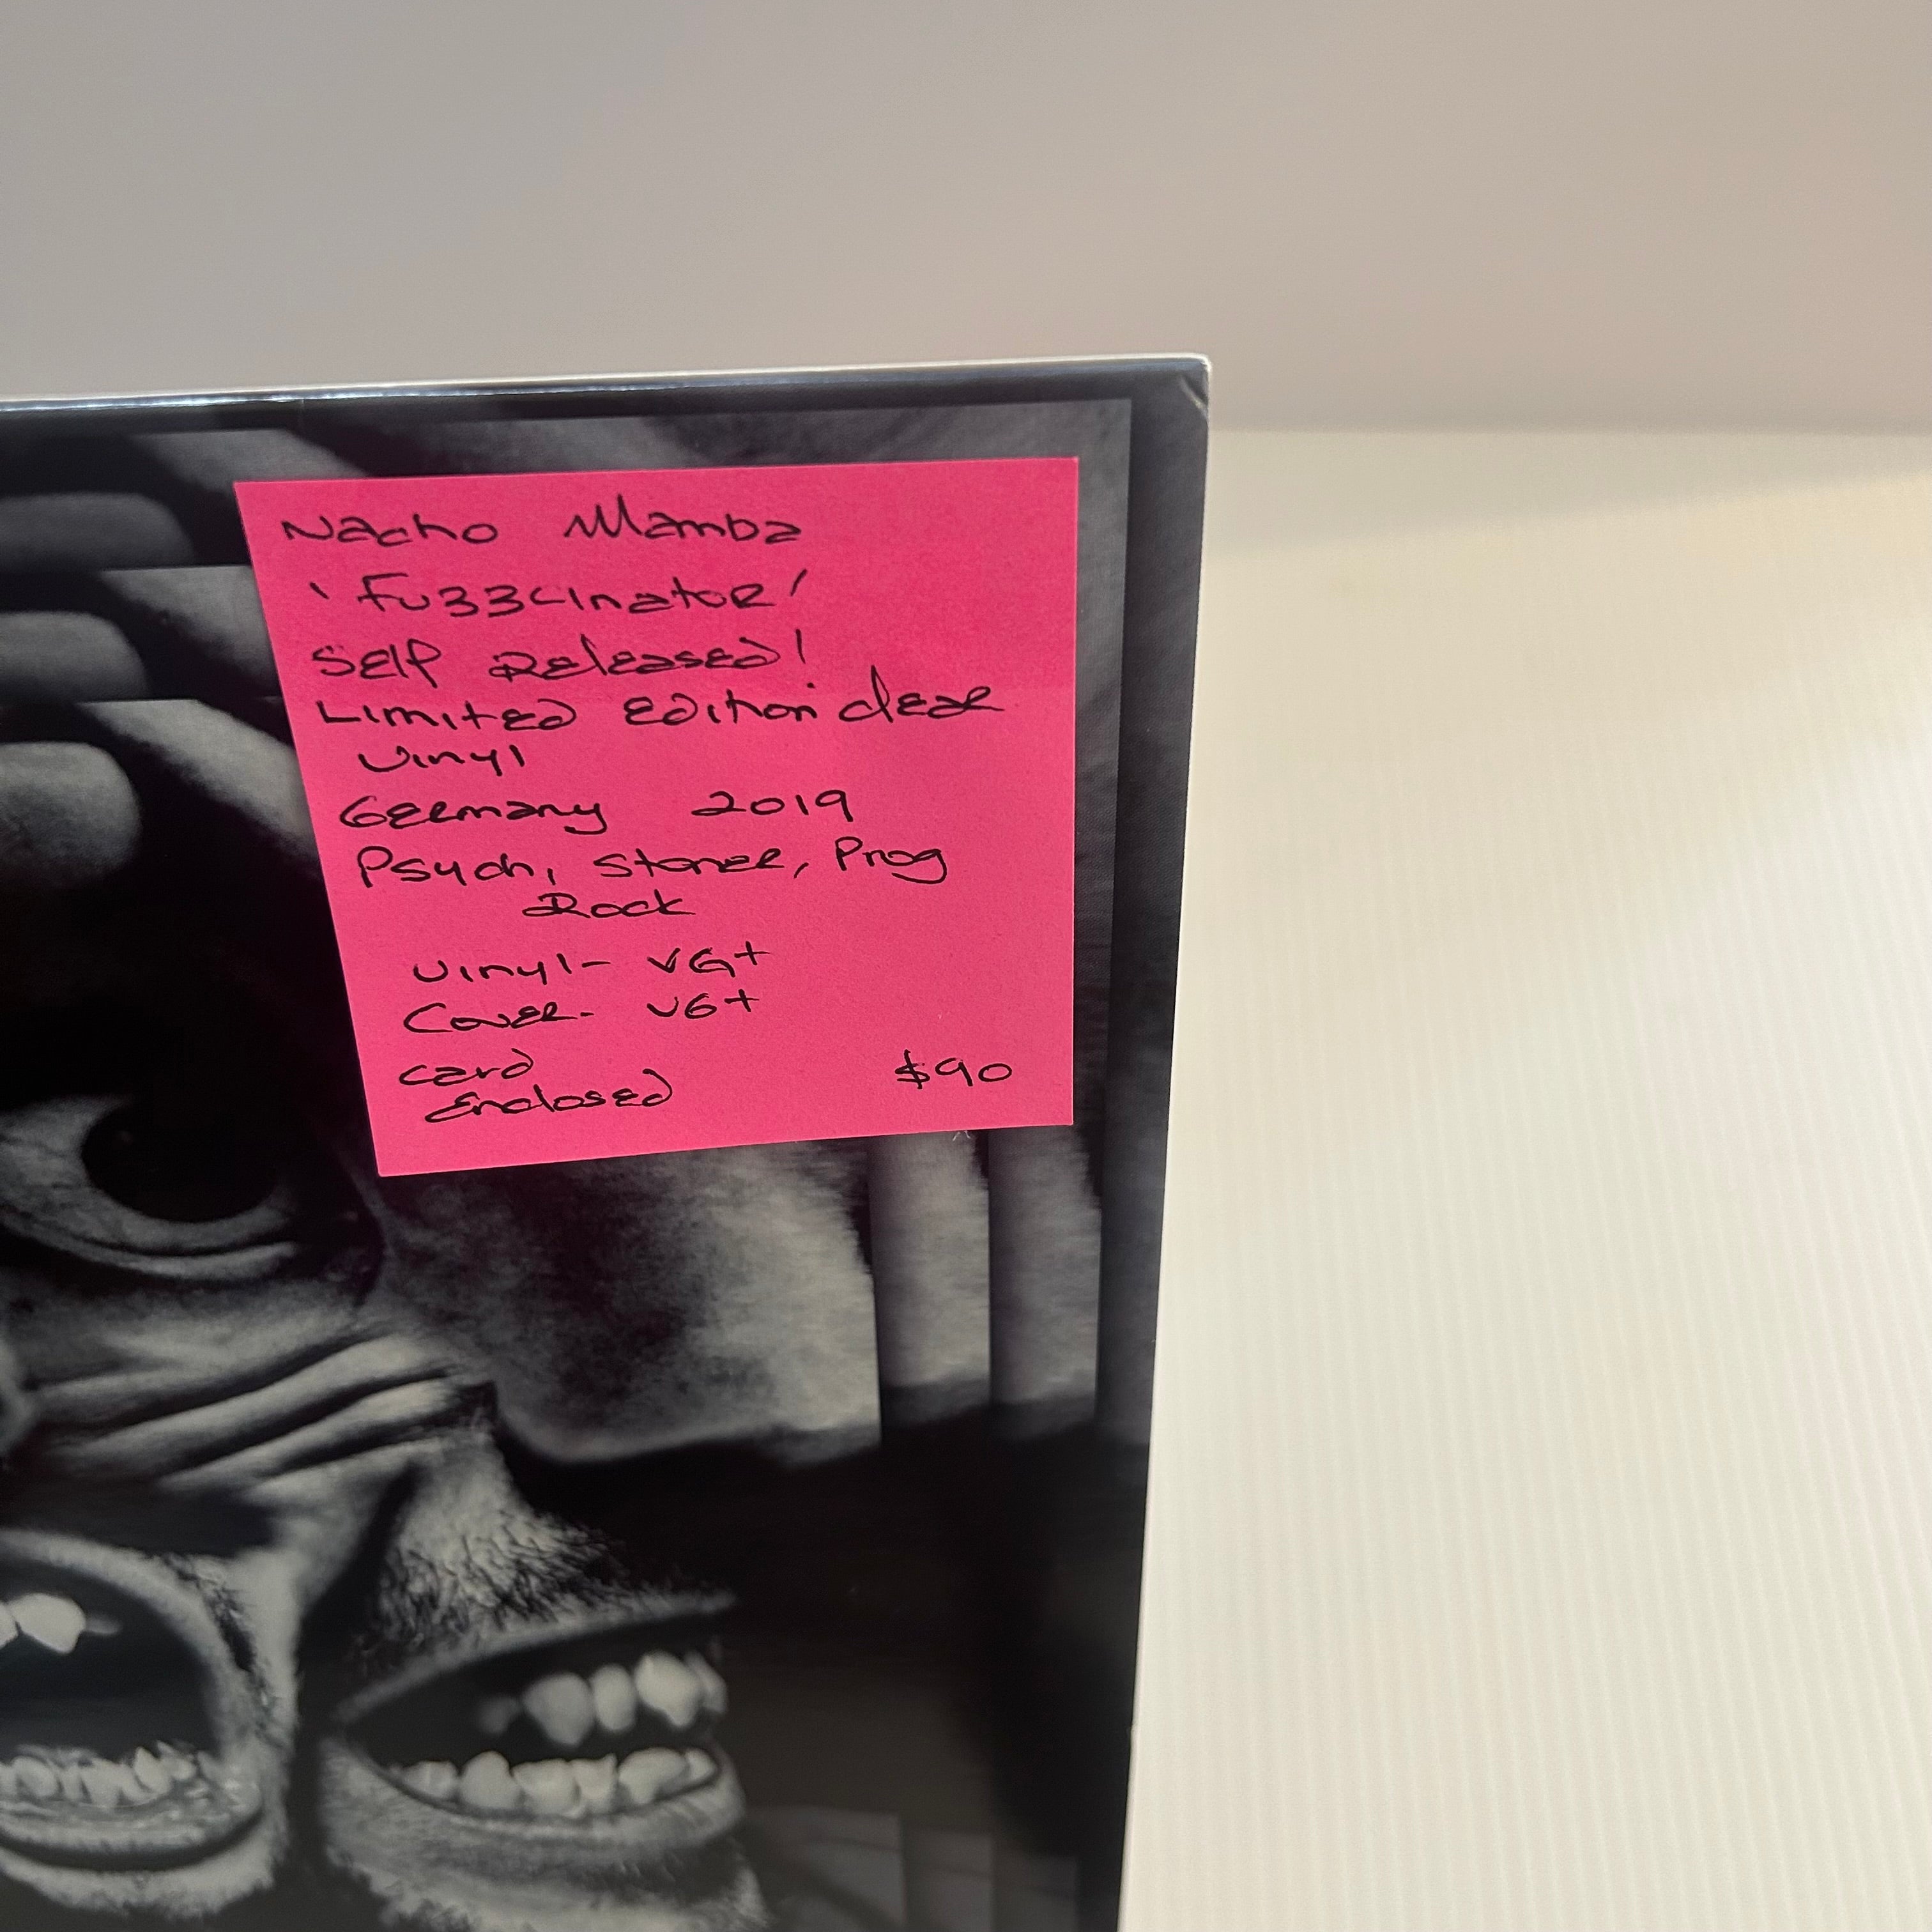 Nacho Mamba
'Fuzzcinator'
Self Released!
Limited Edition clear
Vinyl
Germany 2019
Psych, Stoner, Prog
Rock
Vinyl- VG+
Cover- VG+
Card
Enclosed $90